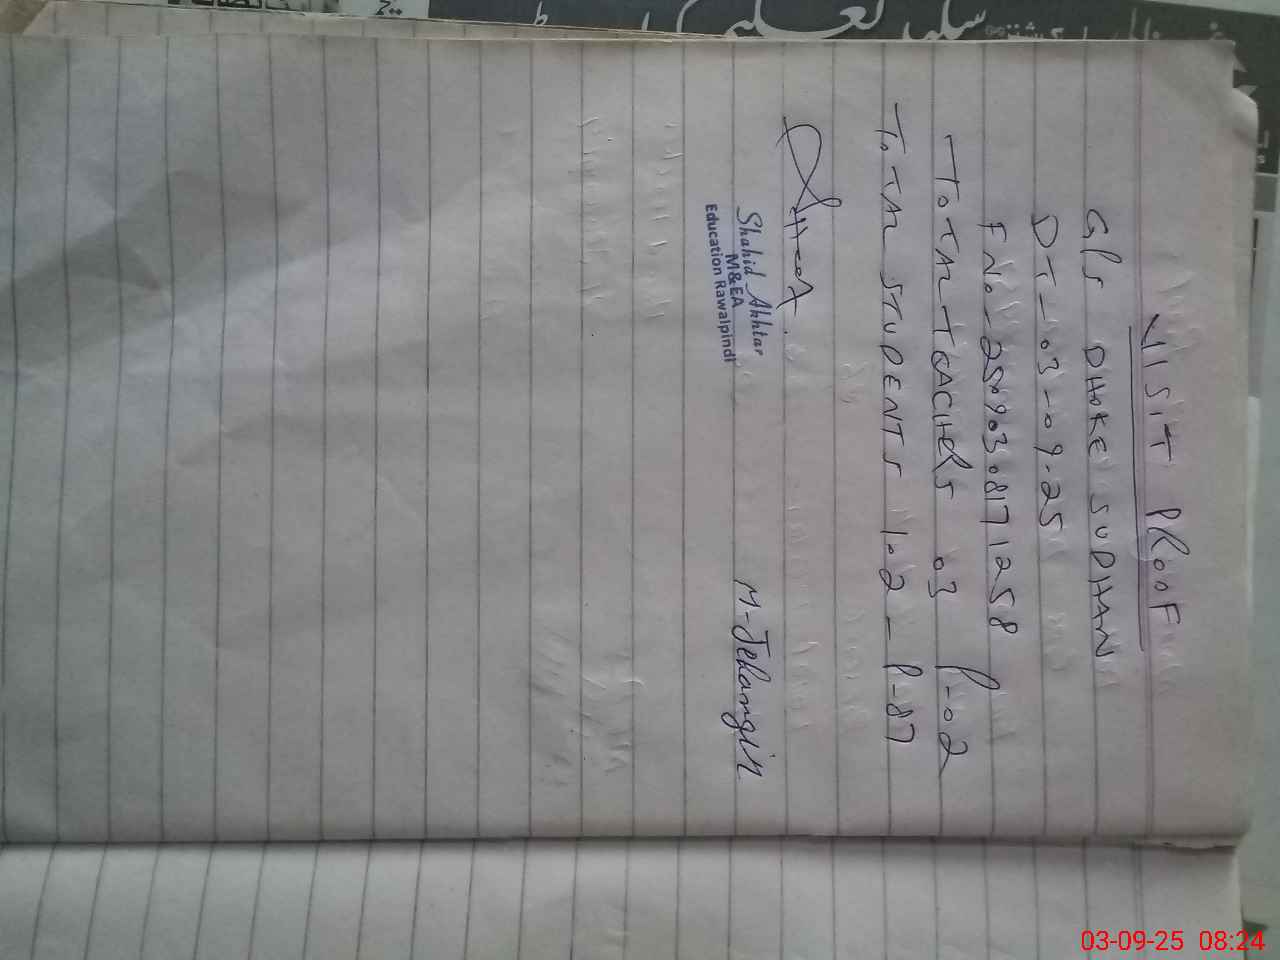 VISIT PROOF
GPS DHOKE SUDHAN
DT-03-09-25
FNo-25090308171258
TOTAL TEACHERS 03 P-02
TOTAL STUDENTS 102-P-87
Shahid Akhtar
M&EA
Education Rawalpindi
M-Jehangir
03-09-25 08:24